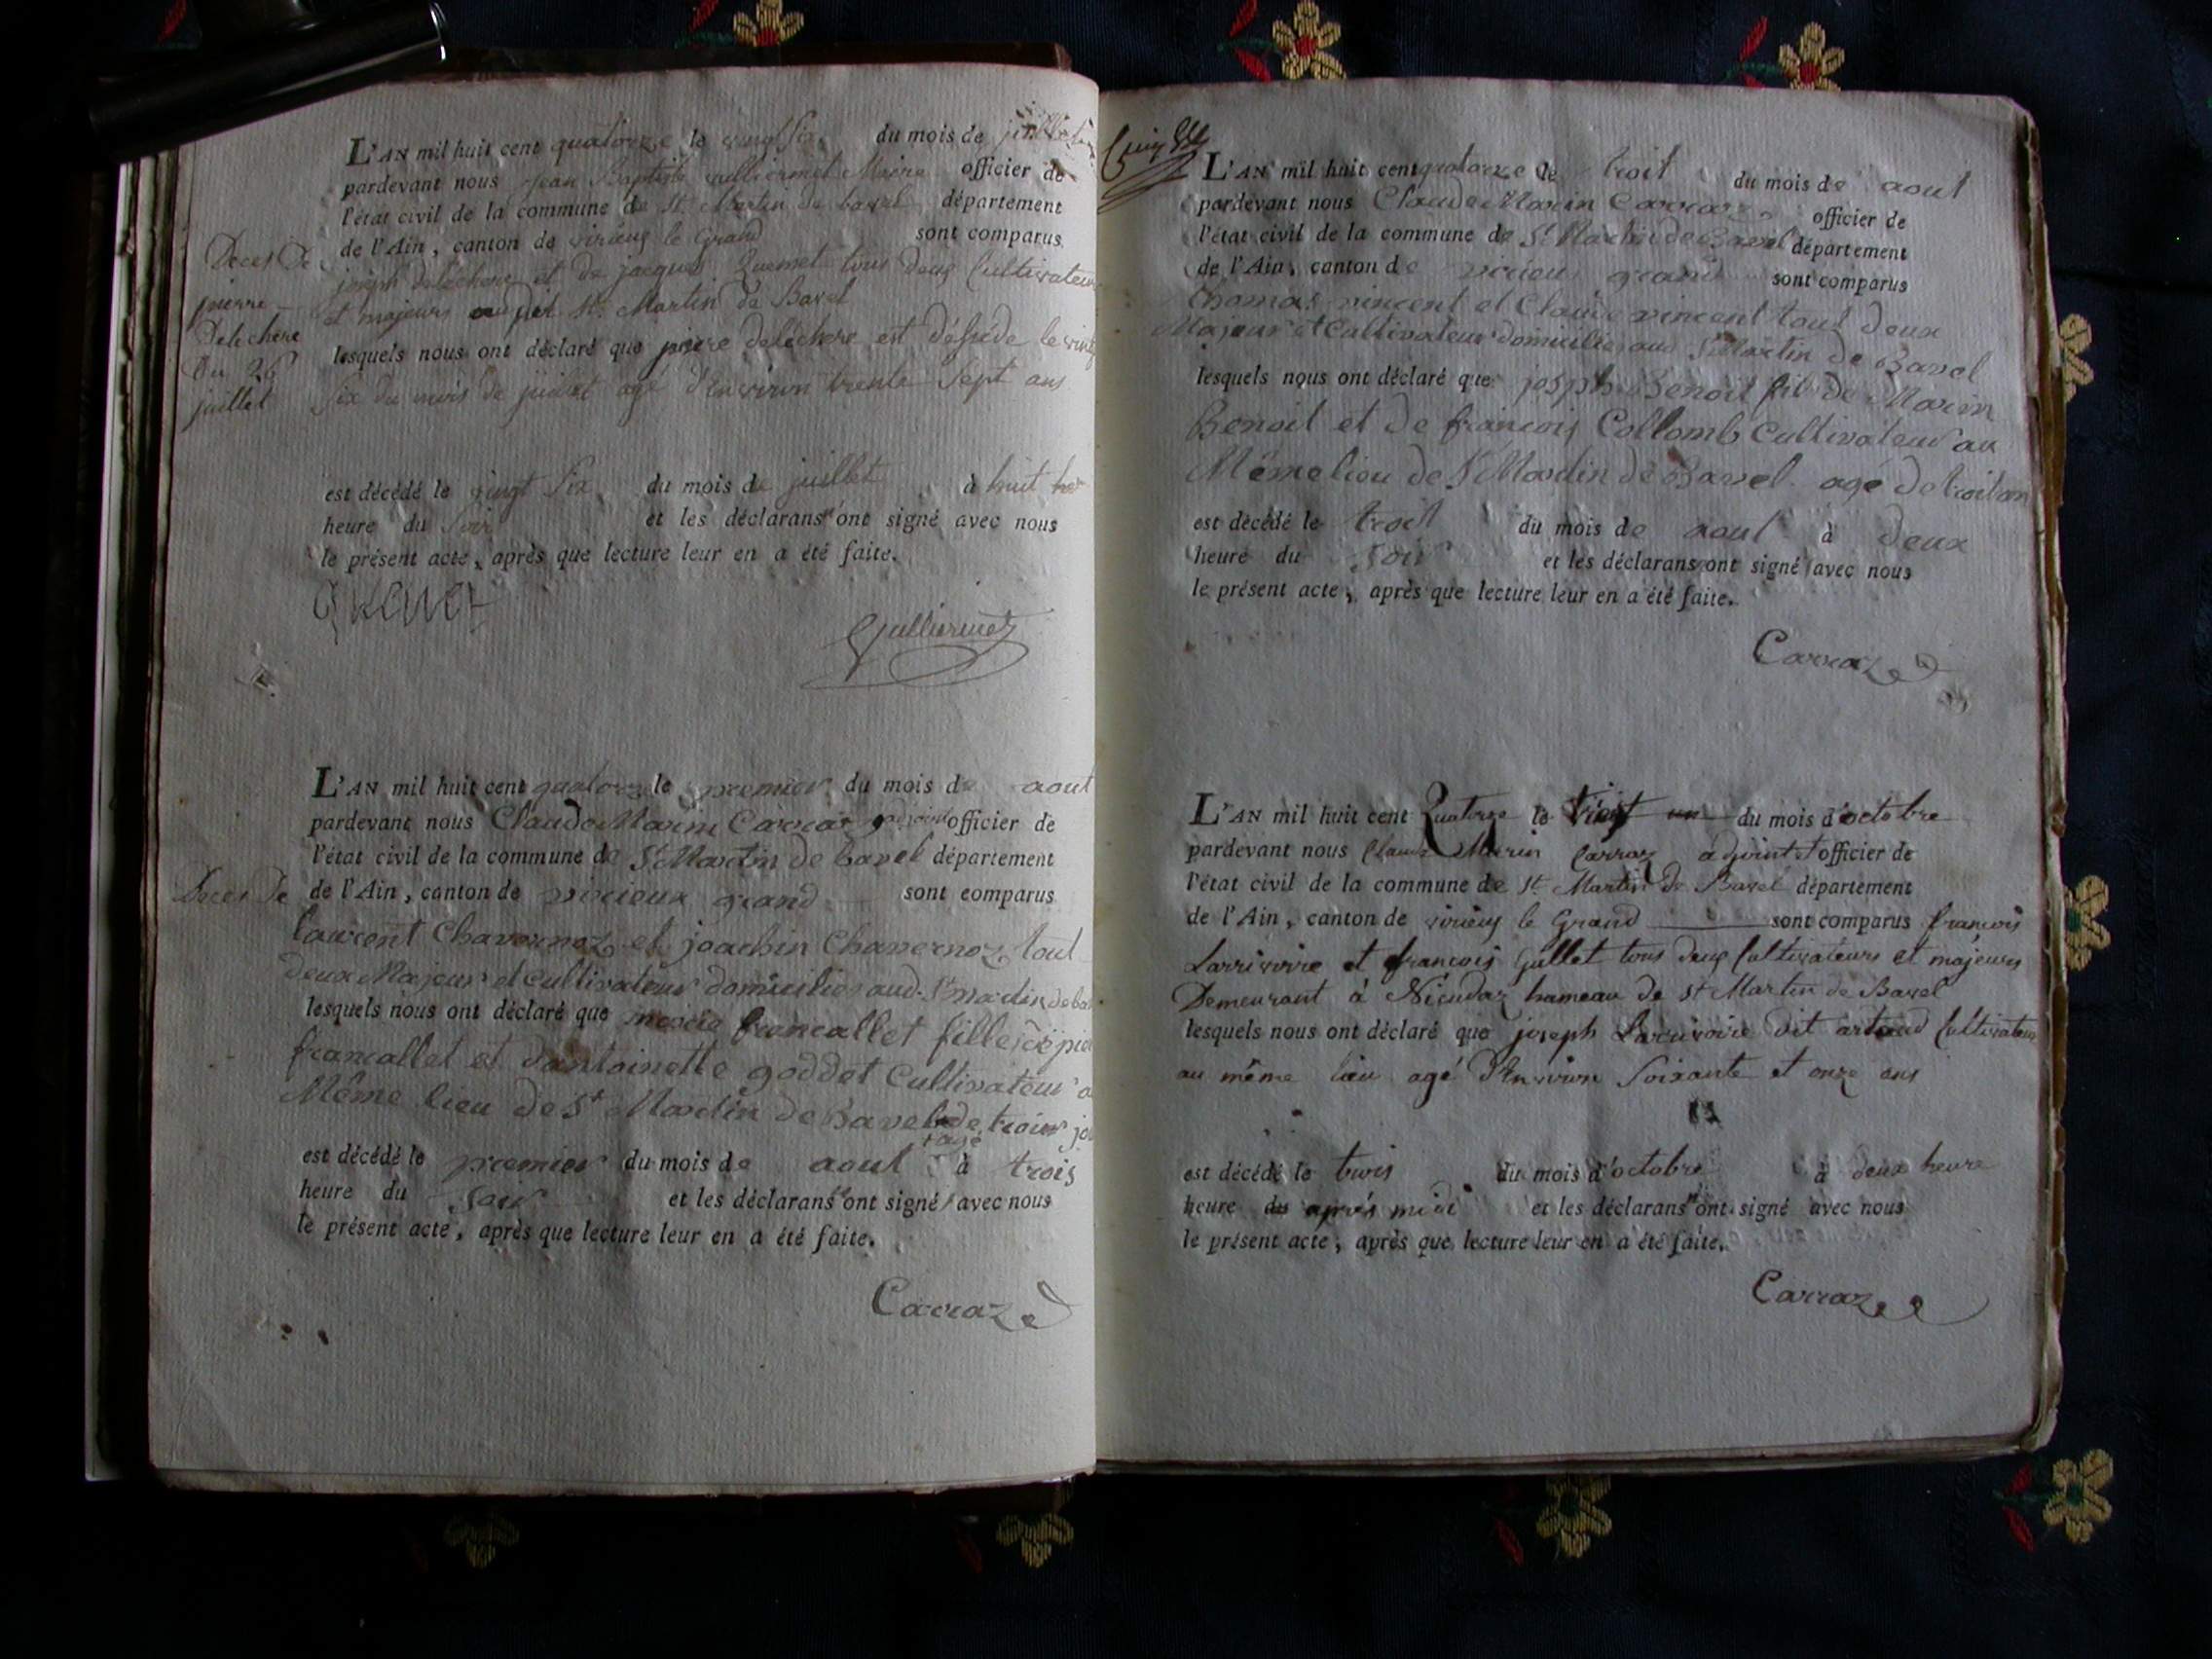 L'AN mil huit cent quatorze le vingt six du mois de juillet
pardevant nous Jean Baptiste Maire officier de
l'état civil de la commune de St. Martin de bavel département
de l'Ain, canton de virieux le Grand sont comparus
joseph deléchere et de jacques tous deux Cultivateurs
et majeurs St. Martin de Bavel
lesquels nous ont déclaré que deléchere est le vingt
six du mois de juillet agé d'Environ trente Sept ans
est décédé le vingt Six du mois de juillet à huit
heure du Soir et les déclarans ont signé avec nous
le présent acte, après que lecture leur en a été faite.
Deces De
pierre
Delechére
Du 26
juillet
L'AN mil huit cent quatorze le premier du mois de aout
pardevant nous Claude Marin Carraz adjoint officier de
l'état civil de la commune de St Martin de bavel département
de l'Ain, canton de virieux grand sont comparus
Deces De
laurent Chavernoz et joachin Chavernoz tout
deux Majeur et Cultivateur domicilies aud. St martin de
lesquels nous ont déclaré que francallet fille de
francallet et dantoinette goddet Cultivateur
Même lieu de St Martin de Bavel de trois
agé
est décédé le premier du mois de aout à trois
heure du soir et les déclarans ont signé avec nous
le présent acte, après que lecture leur en a été faite.
Carraz
L'AN mil huit cent quatorze le troit du mois de aout
pardevant nous Claude Marin Carraz officier de
l'état civil de la commune de St Martin de Bavel département
de l'Ain, canton de virieu grand sont comparus
thomas vincent et Claude vincent tout deux
Majeur et Cultivateur domicilies aud St Martin de Bavel
lesquels nous ont déclaré que joseph Benoit fils de Marin
Benoit et de françois Collomb Cultivateur au
Même lieu de St Mardin de Bavel agé de troit an
est décédé le troit du mois de aout à deux
heure du soir et les déclarans ont signé avec nous
le présent acte, après que lecture leur en a été faite.
Carraz
L'AN mil huit cent Quatorze le du mois d'octobre
pardevant nous Claude Marin Carraz adjoint et officier de
l'état civil de la commune de St. Martin de Bavel département
de l'Ain, canton de virieux le Grand sont comparus françois
Larrivoire et francois Gullet tous deux Cultivateurs et majeurs
Demeurant à hameau de St Martin de Bavel
lesquels nous ont déclaré que joseph Larrivoire dit Cultivateur
au même lieu agé d'Environ Soixante et onze ans
est décédé le trois du mois d'octobre à deux heure
heure du après midi et les déclarans ont signé avec nous
le présent acte, après que lecture leur en a été faite.
Carraz